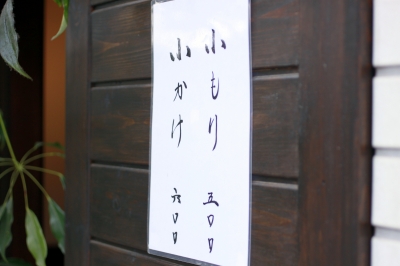 小もり 五〇〇
小かけ 六〇〇